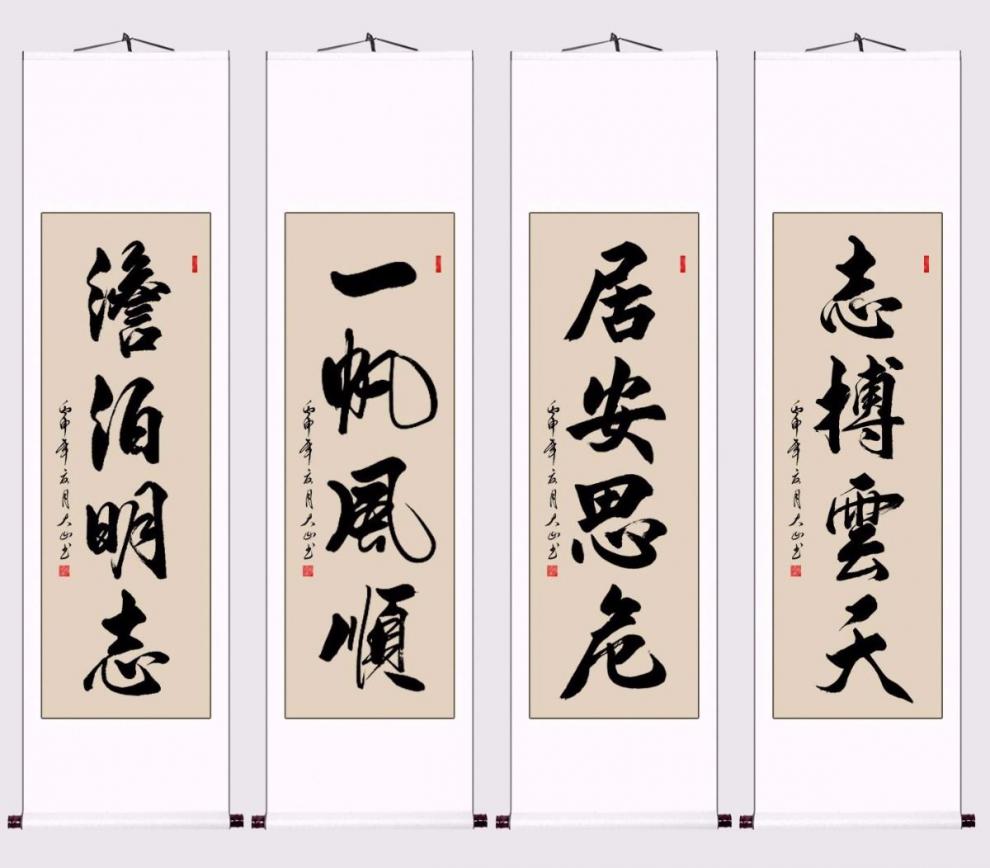 志搏雲天
丙申年亥月大山书
居安思危
丙申年亥月大山书
一帆風順
丙申年亥月大山书
澹泊明志
丙申年亥月大山书